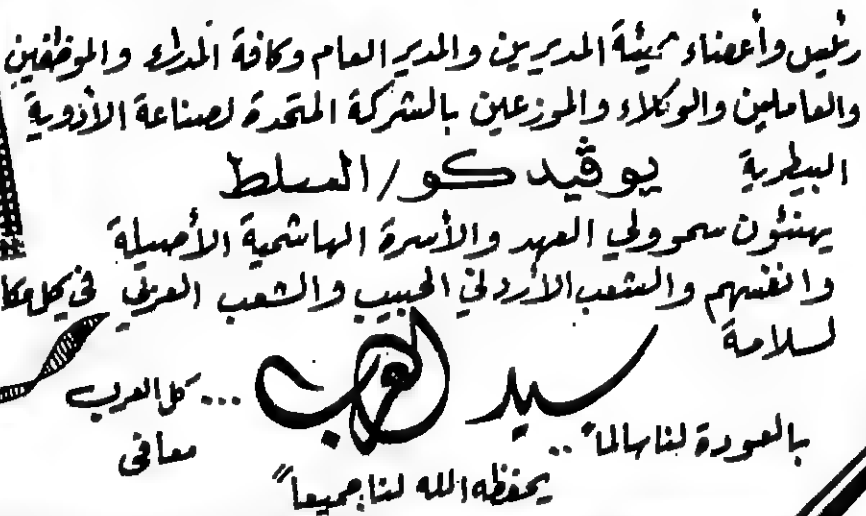 رئيس وأعضاء هيئة المديرين والمدير العام وكافة المدراء والموظفين
والعاملين والوكلاء والموزعين بالشركة المتحدة لصناعة الأدوية
البيطرية يوڤيدكو / السلط
يهنئون سمو ولي العهد والأسرة الهاشمية الأصيلة
وانفسهم والشعب الأردني الحبيب والشعب العربي في كل مكا
لسلامة
سيد العرب ... كل العرب
بالعودة لنا سالماً .. معافى
يحفظه الله لنا جميعاً